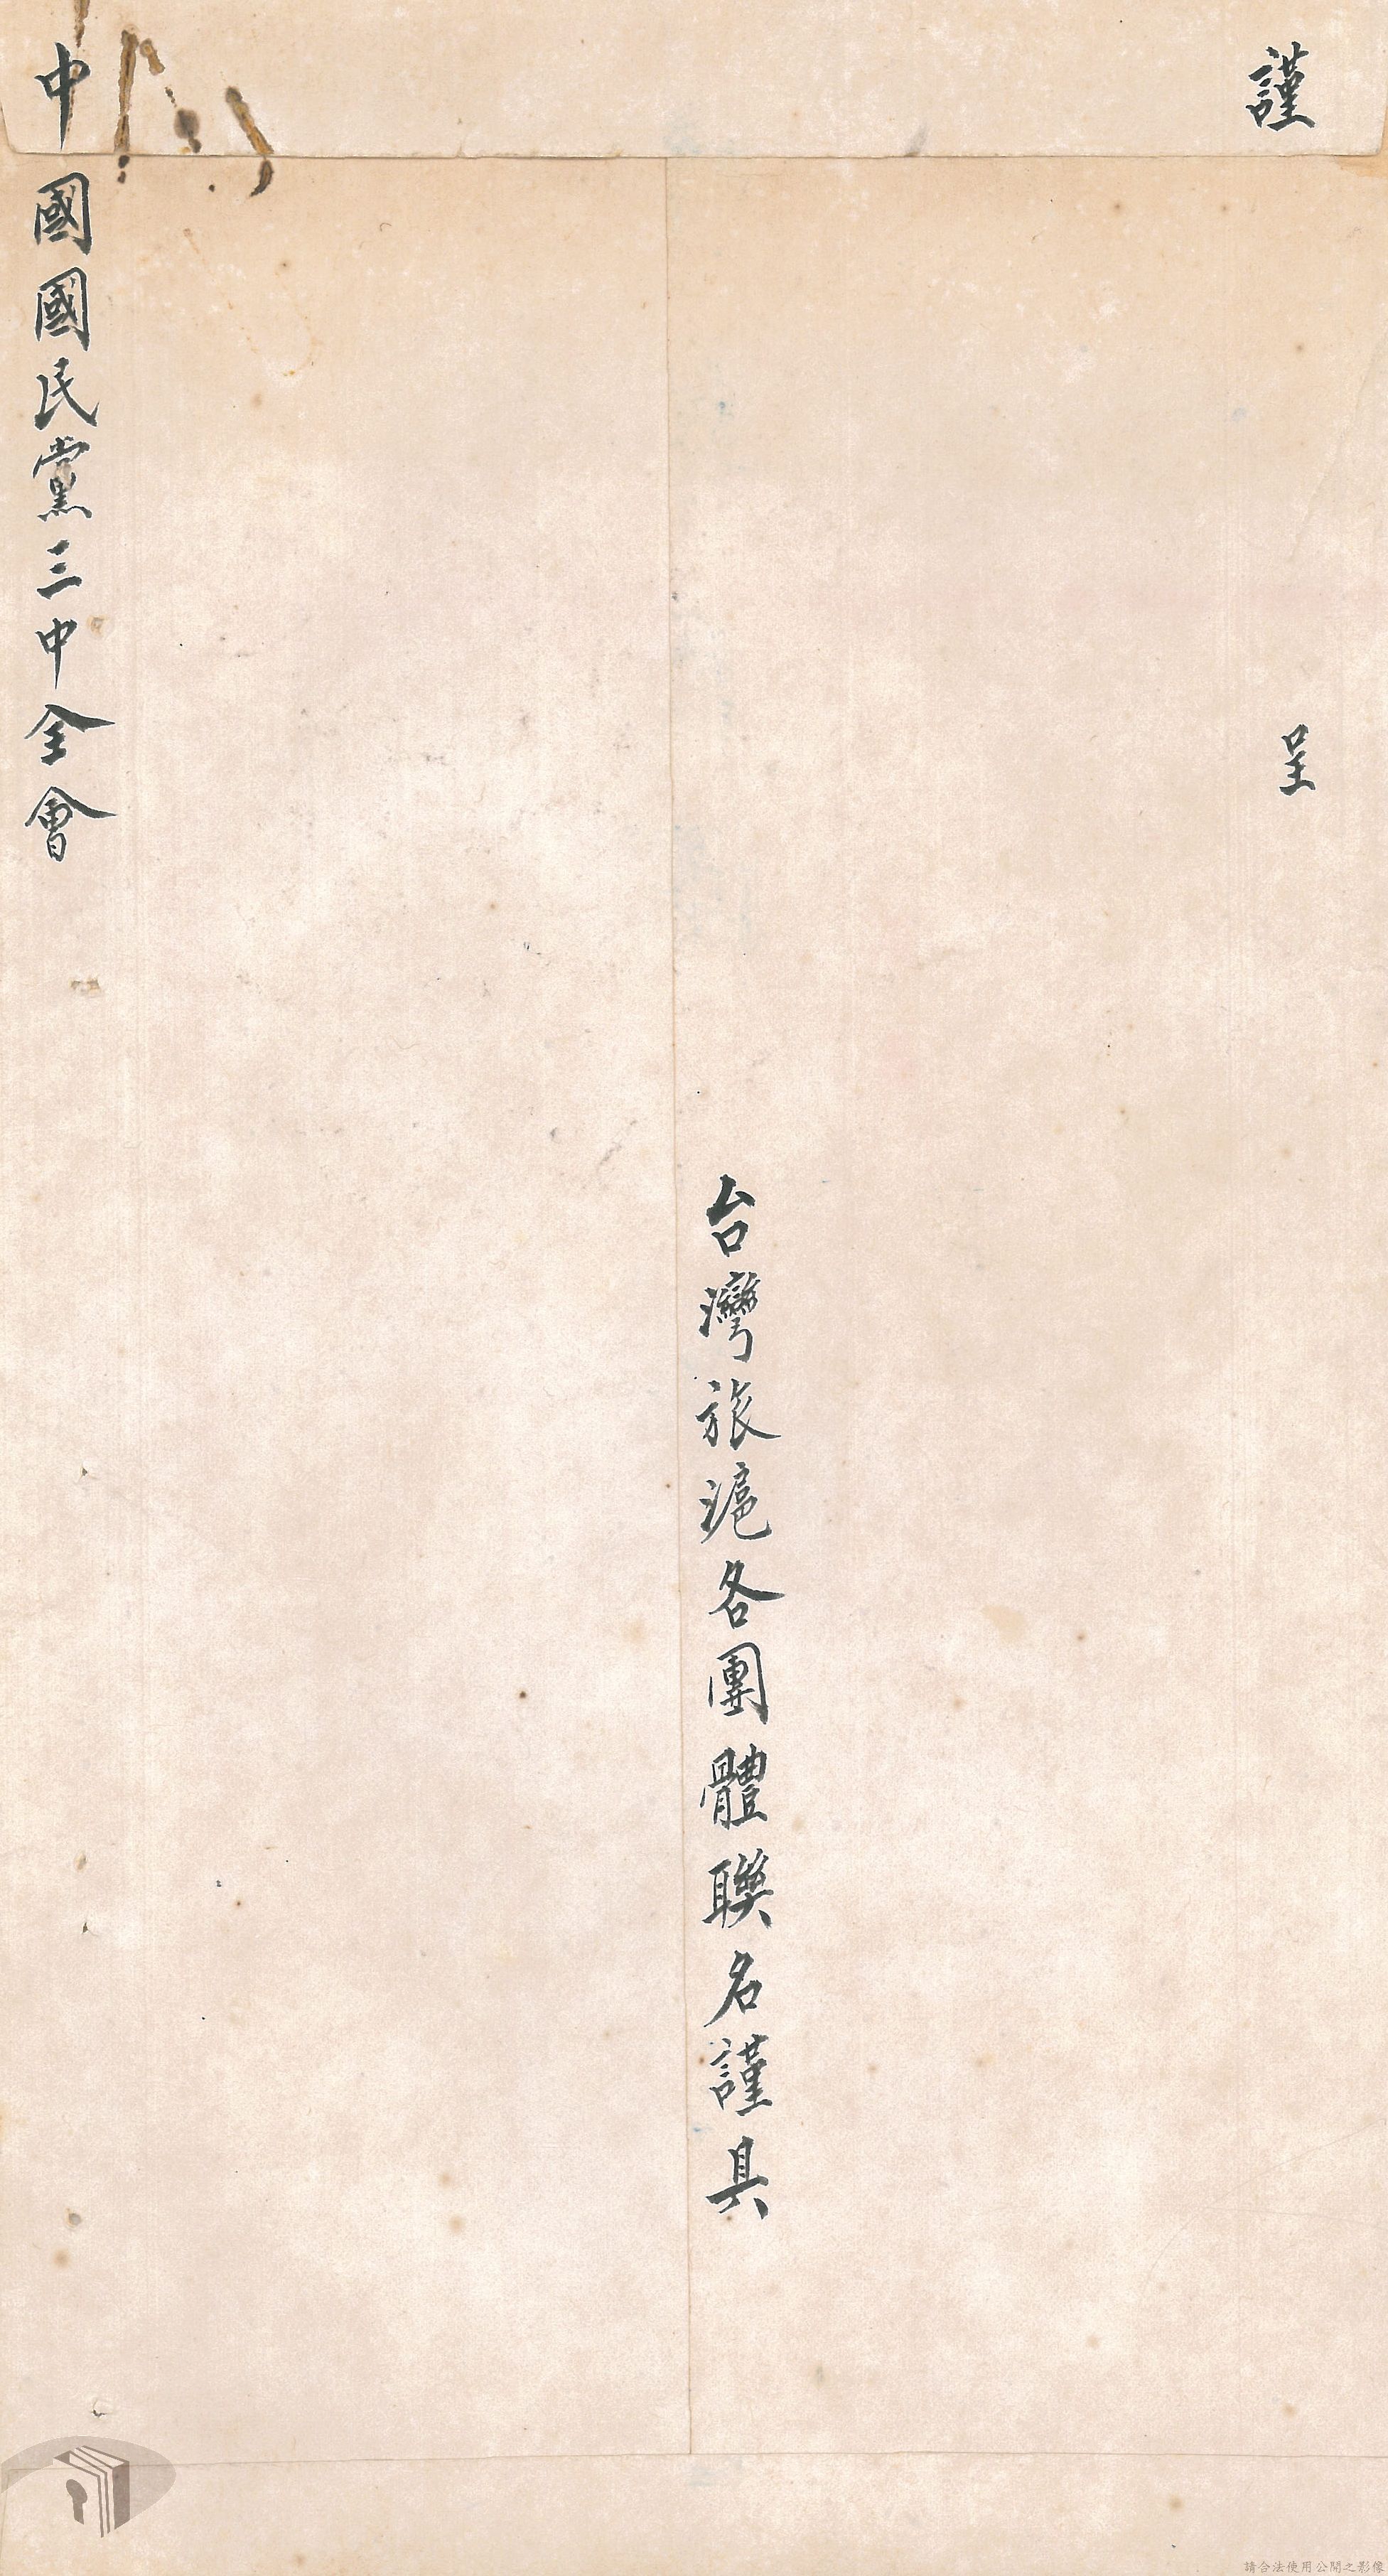 謹
呈
台灣旅滬各團體聯名謹具
中國國民黨三中全會
請合法使用公開之影像